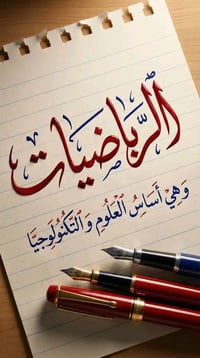 الرِّيَاضِيَات
وَهِيَ أَسَاسُ الْعُلُومِ وَ التِّكْنُولُوجِيَّا